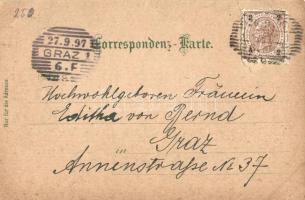 250
27.9.97
GRAZ 1
6.F
Correspondenz-Karte.
Nur für die Adresse
Hochwohlgeboren Fräulein
Editha von Bernd
Graz
in
Annenstraße № 37